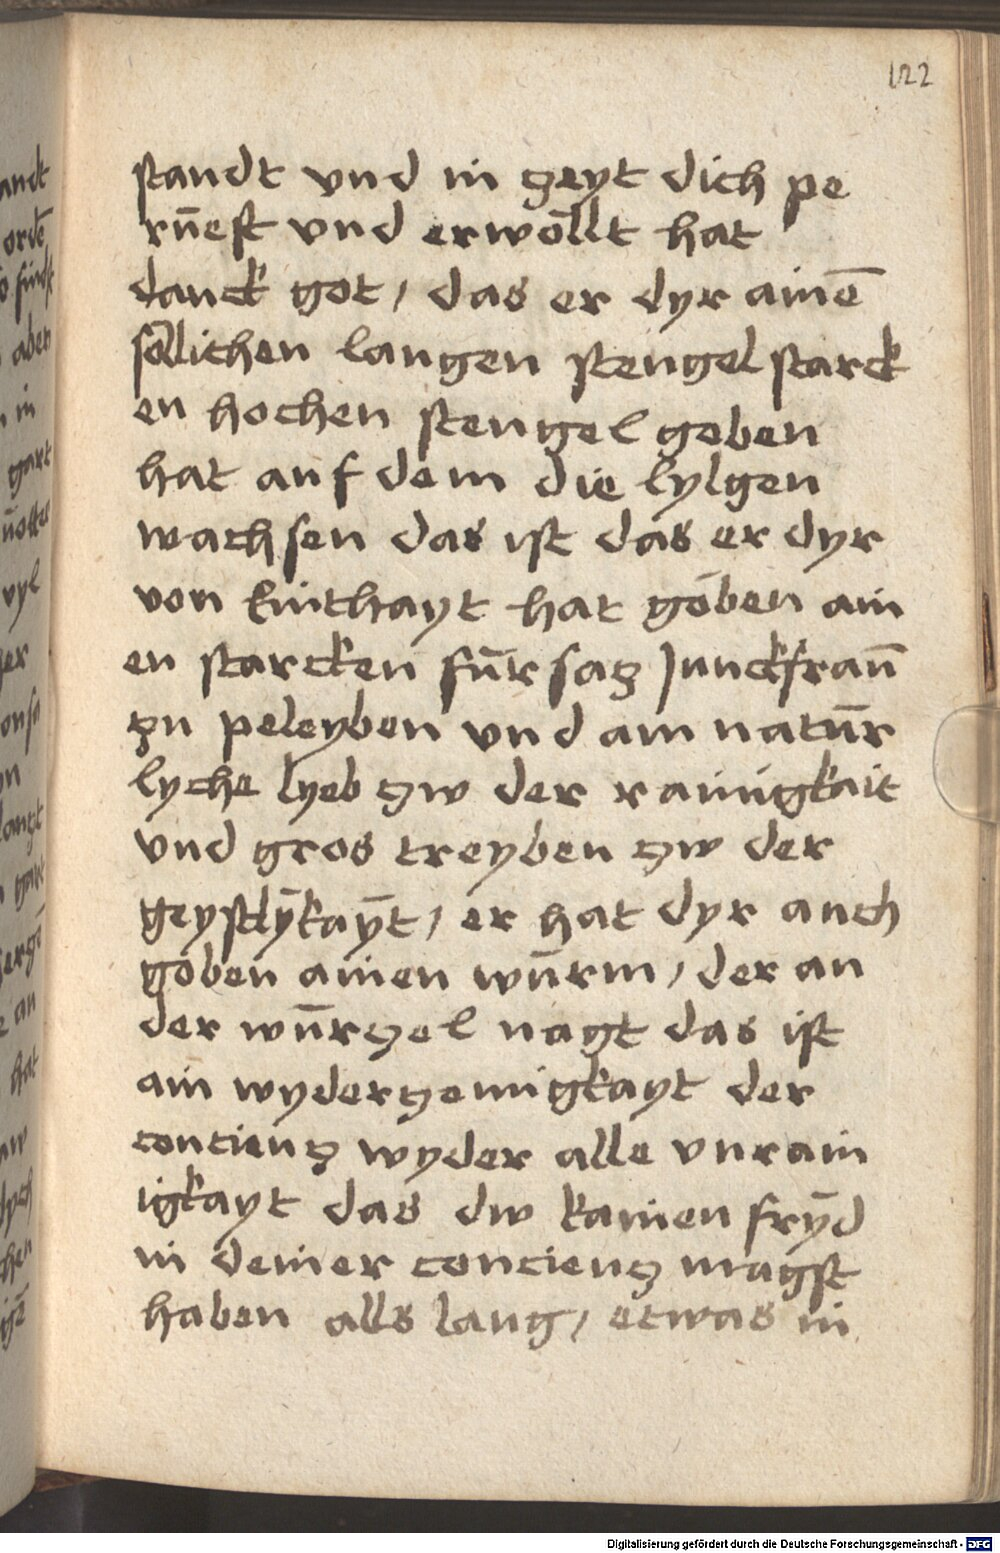 122
standt vnd in zeyt dich pe
rūest vnd erwöllt hat
danck got / das er dyr ainē
söllichen langen stengel starck
en hochen stengel geben
hat auf dem die lylgen
wachsen das ist das er dyr
von kinthayt hat göben ain
en starcken fūrsaz Junckfraū
zu peleyben vnd ain natūr
lyche lyeb zw der rainigkait
vnd gros treyben zw der
geystlykayt / er hat dyr auch
göben ainen wūrm / der an
der wūrzel nagt das ist
ain wyderzemigkayt der
concienz wyder alle vnrain
igkayt das dw kainen fryd
in deiner concienz magst
haben alls lang / etwas in
Digitalisierung gefördert durch die Deutsche Forschungsgemeinschaft - DFG